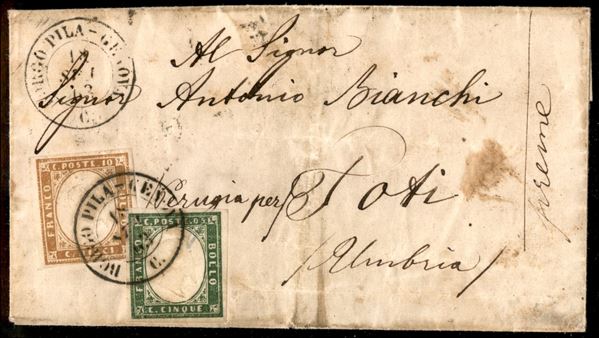 BORGO PILA-GENOVA
C.
Al Signor
Signor Antonio Bianchi
Perugia per Todi
(Umbria)
preme
C. POSTE 10
FRANCO
BORGO PILA-GENOVA
C.
C. POSTE 05
FRANCO
BOLLO
C. CINQUE